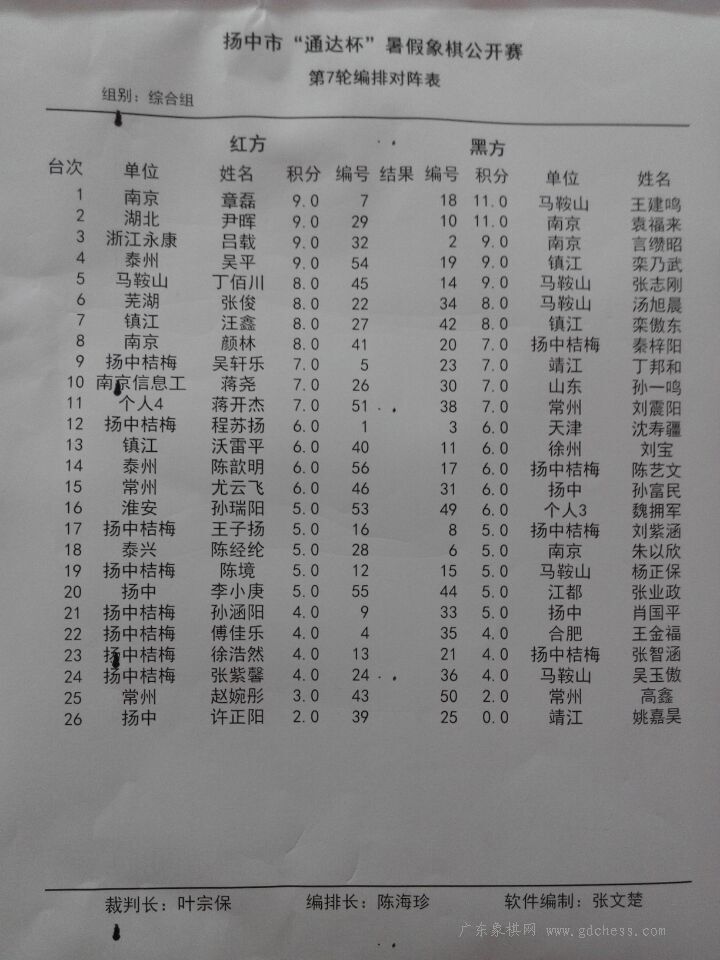 扬中市“通达杯”暑假象棋公开赛
第7轮编排对阵表
组别：综合组
红方 黑方
台次 单位 姓名 积分 编号 结果 编号 积分 单位 姓名
1 南京 章磊 9.0 7 18 11.0 马鞍山 王建鸣
2 湖北 尹晖 9.0 29 10 11.0 南京 袁福来
3 浙江永康 吕载 9.0 32 2 9.0 南京 言缵昭
4 泰州 吴平 9.0 54 19 9.0 镇江 栾乃武
5 马鞍山 丁佰川 8.0 45 14 9.0 马鞍山 张志刚
6 芜湖 张俊 8.0 22 34 8.0 马鞍山 汤旭晨
7 镇江 汪鑫 8.0 27 42 8.0 镇江 栾傲东
8 南京 颜林 8.0 41 20 7.0 扬中桔梅 秦梓阳
9 扬中桔梅 吴轩乐 7.0 5 23 7.0 靖江 丁邦和
10 南京信息工 蒋尧 7.0 26 30 7.0 山东 孙一鸣
11 个人4 蒋开杰 7.0 51 38 7.0 常州 刘震阳
12 扬中桔梅 程苏扬 6.0 1 3 6.0 天津 沈寿疆
13 镇江 沃雷平 6.0 40 11 6.0 徐州 刘宝
14 泰州 陈歆明 6.0 56 17 6.0 扬中桔梅 陈艺文
15 常州 尤云飞 6.0 46 31 6.0 扬中 孙富民
16 淮安 孙瑞阳 5.0 53 49 6.0 个人3 魏拥军
17 扬中桔梅 王子扬 5.0 16 8 5.0 扬中桔梅 刘紫涵
18 泰兴 陈经纶 5.0 28 6 5.0 南京 朱以欣
19 扬中桔梅 陈境 5.0 12 15 5.0 马鞍山 杨正保
20 扬中 李小庚 5.0 55 44 5.0 江都 张业政
21 扬中桔梅 孙涵阳 4.0 9 33 5.0 扬中 肖国平
22 扬中桔梅 傅佳乐 4.0 4 35 4.0 合肥 王金福
23 扬中桔梅 徐浩然 4.0 13 21 4.0 扬中桔梅 张智涵
24 扬中桔梅 张紫馨 4.0 24 36 4.0 马鞍山 吴玉傲
25 常州 赵婉彤 3.0 43 50 2.0 常州 高鑫
26 扬中 许正阳 2.0 39 25 0.0 靖江 姚嘉昊
裁判长：叶宗保 编排长：陈海珍 软件编制：张文楚
广东象棋网 www.gdchess.com